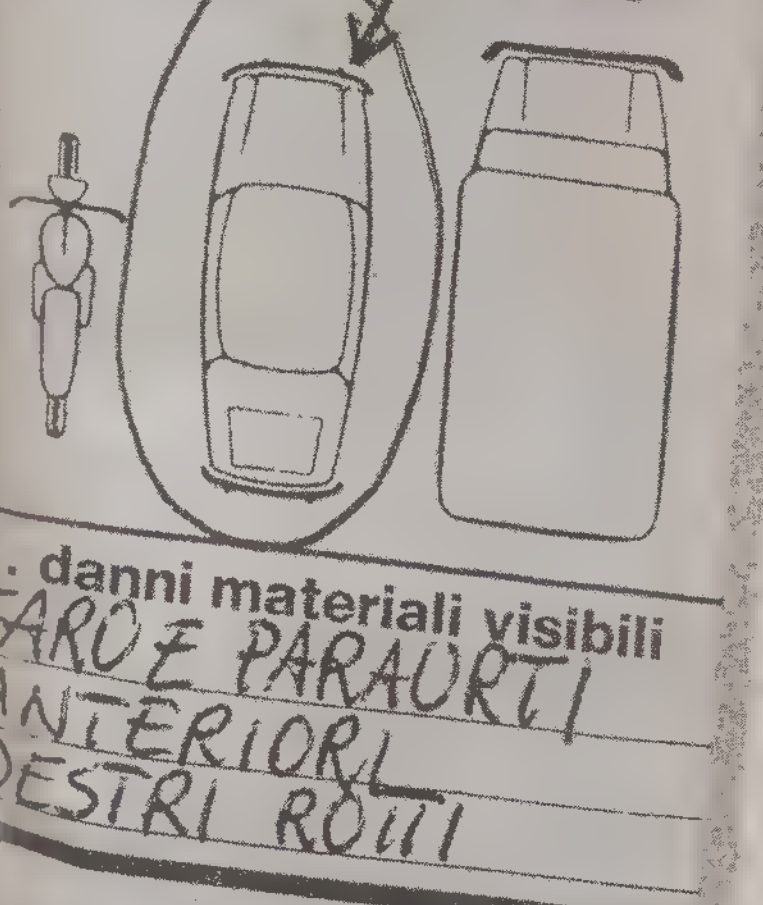 . danni materiali visibili
FARO E PARAURTI
ANTERIORI
DESTRI ROTTI